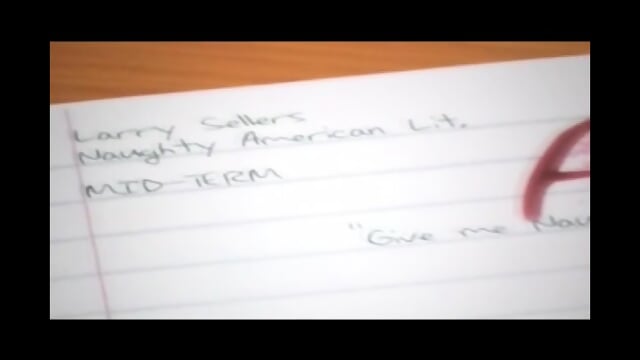 Larry Sellers
Naughty American Lit.
MID-TERM
A
"Give me Nau